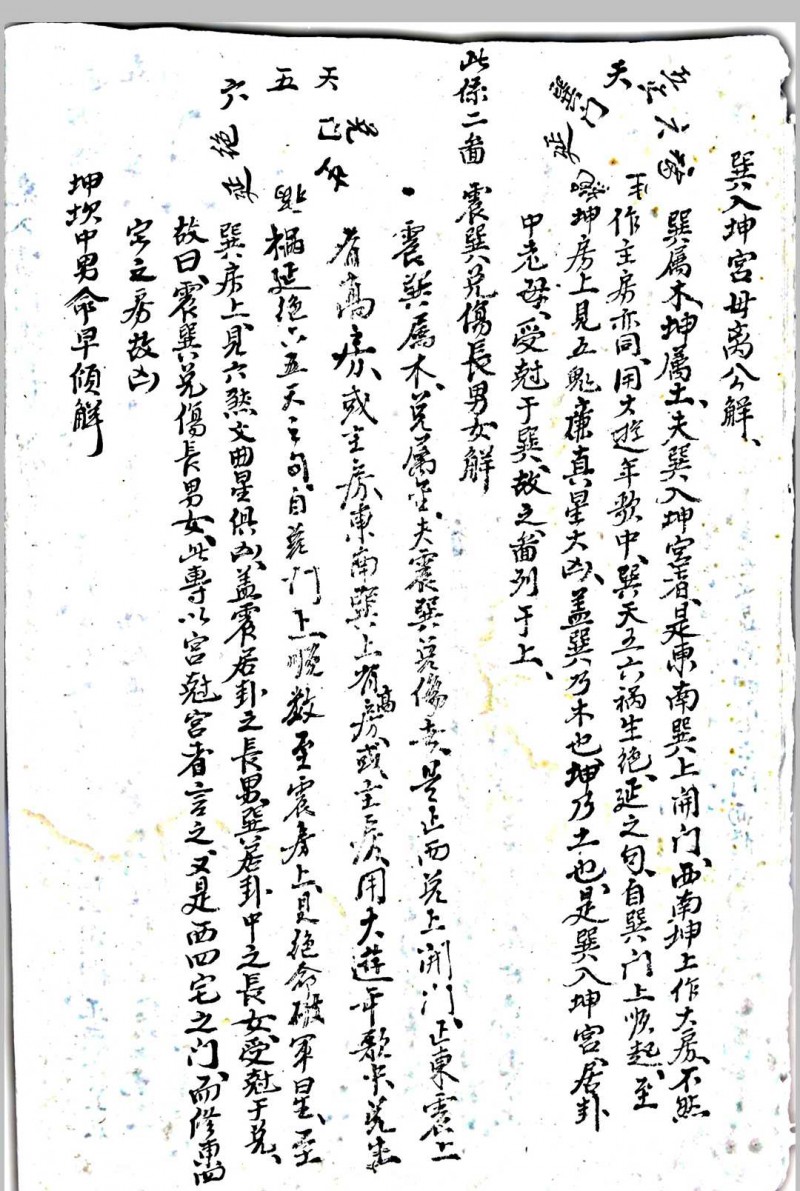 巽入坤宮母离公解、
巽属木、坤属土、夫巽入坤宮者、是東南巽上開门、西南坤上作大房、不然
作主房亦同、用大遊年歌中、巽天五六祸生绝延之句、自巽门上順起、至
坤房上見五鬼亷真星大凶、盖巽乃木也、坤乃土也、是巽入坤宮、居卦
中老母、受尅于巽、故之、畨列于上、
此係二畨
震巽兑傷長男女解
震巽属木、兑属金、夫震巽兑傷者、是正西兑上開门、正東震上
有高房、或主房、東南巽上有高房、或主房、用大遊年歌中、兑生
祸延绝六五天之句、自兑门上順数至震房上、見绝命破军星、至
巽房上、見六煞文曲星俱凶、盖震居卦之長男、巽居卦中之長女、受尅于兑、
故曰、震巽兑傷長男女、此專以宮尅宮者言之、又是西四宅之门、而修東四
宅之房故凶
坤坎中男命早傾解